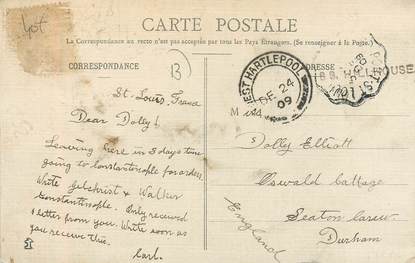 4ot
CARTE POSTALE
La Correspondance au recto n'est pas acceptée par tous les Pays Étrangers. (Se renseigner à la Poste.)
CORRESPONDANCE
13
St. Louis, France
Dear Dolly!
Leaving here in 3 days time
going to Constantinople for orders.
Write Gilchrist & Walker
Constantinople. Only received
1 letter from you. Write soon as
you receive this.
Carl.
ADRESSE
WEST HARTLEPOOL
DE 24
09
S.S. HILLHOUSE
Miss
Dolly Elliott
Oswald Cottage
Seaton Carew
Durham
England